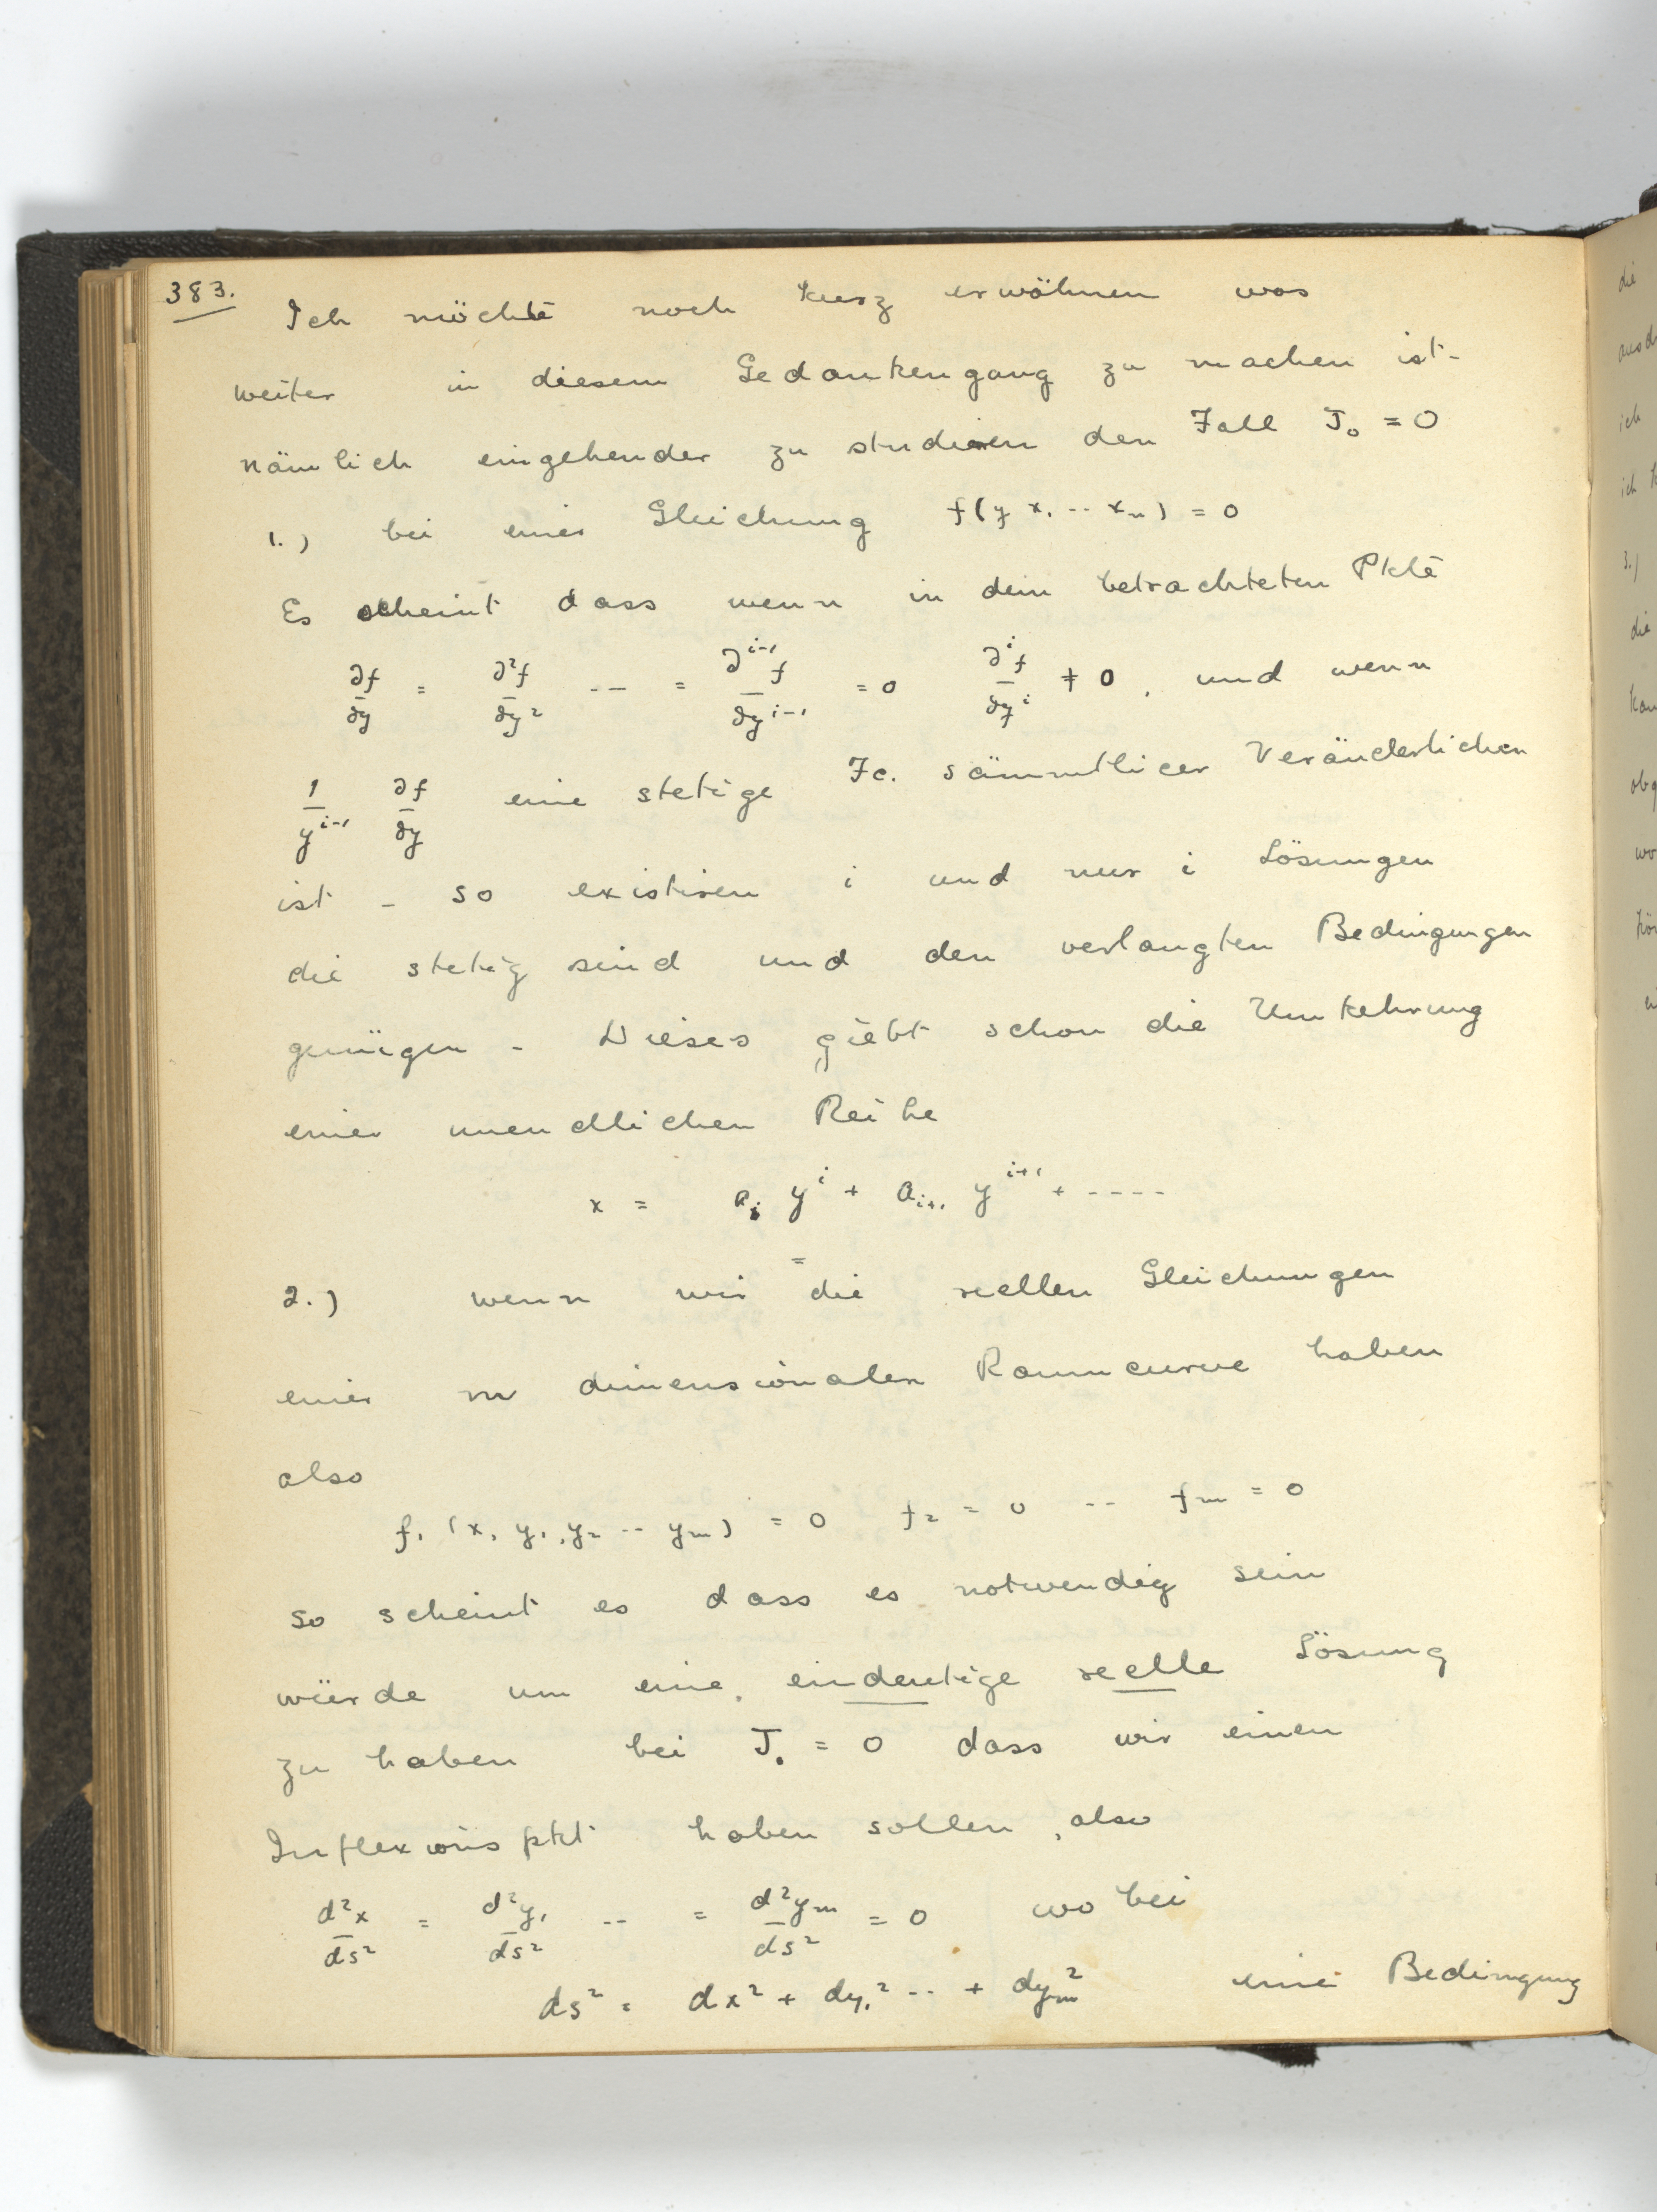 383.
Ich möchte noch kurz erwähnen was
weiter in diesem Gedankengang zu machen ist -
nämlich eingehender zu studieren den Fall J₀ = 0
1.) bei einer Gleichung f(y x₁ -- xₙ) = 0
Es scheint dass wenn in dem betrachteten Pkte
∂f/∂y = ∂²f/∂y² -- = ∂ⁱ⁻¹f/∂yⁱ⁻¹ = 0 ∂ⁱf/∂yⁱ ≠ 0, und wenn
1/yⁱ⁻¹ ∂f/∂y eine stetige Fc. sämmtlicer Veränderlichen
ist - so existiren i und nur i Lösungen
die stetig sind und den verlangten Bedingungen
genügen - Dieses giebt schon die Umkehrung
einer unendlichen Reihe
x = aᵢ yⁱ + aᵢ₊₁ yⁱ⁺¹ + ----
2.) wenn wir die reellen Gleichungen
einer m dimensionalen Raumcurve haben
also
f₁ (x, y₁, y₂ -- yₘ) = 0 f₂ = 0 -- fₘ = 0
so scheint es dass es notwendig sein
würde um eine eindeutige reelle Lösung
zu haben bei J₀ = 0 dass wir einen
Inflexionspkt haben sollen, also
d²x/ds² = d²y₁/ds² -- = d²yₘ/ds² = 0 wo bei
ds² = dx² + dy₁² -- + dyₘ² eine Bedingung
die
ich
3.)
die